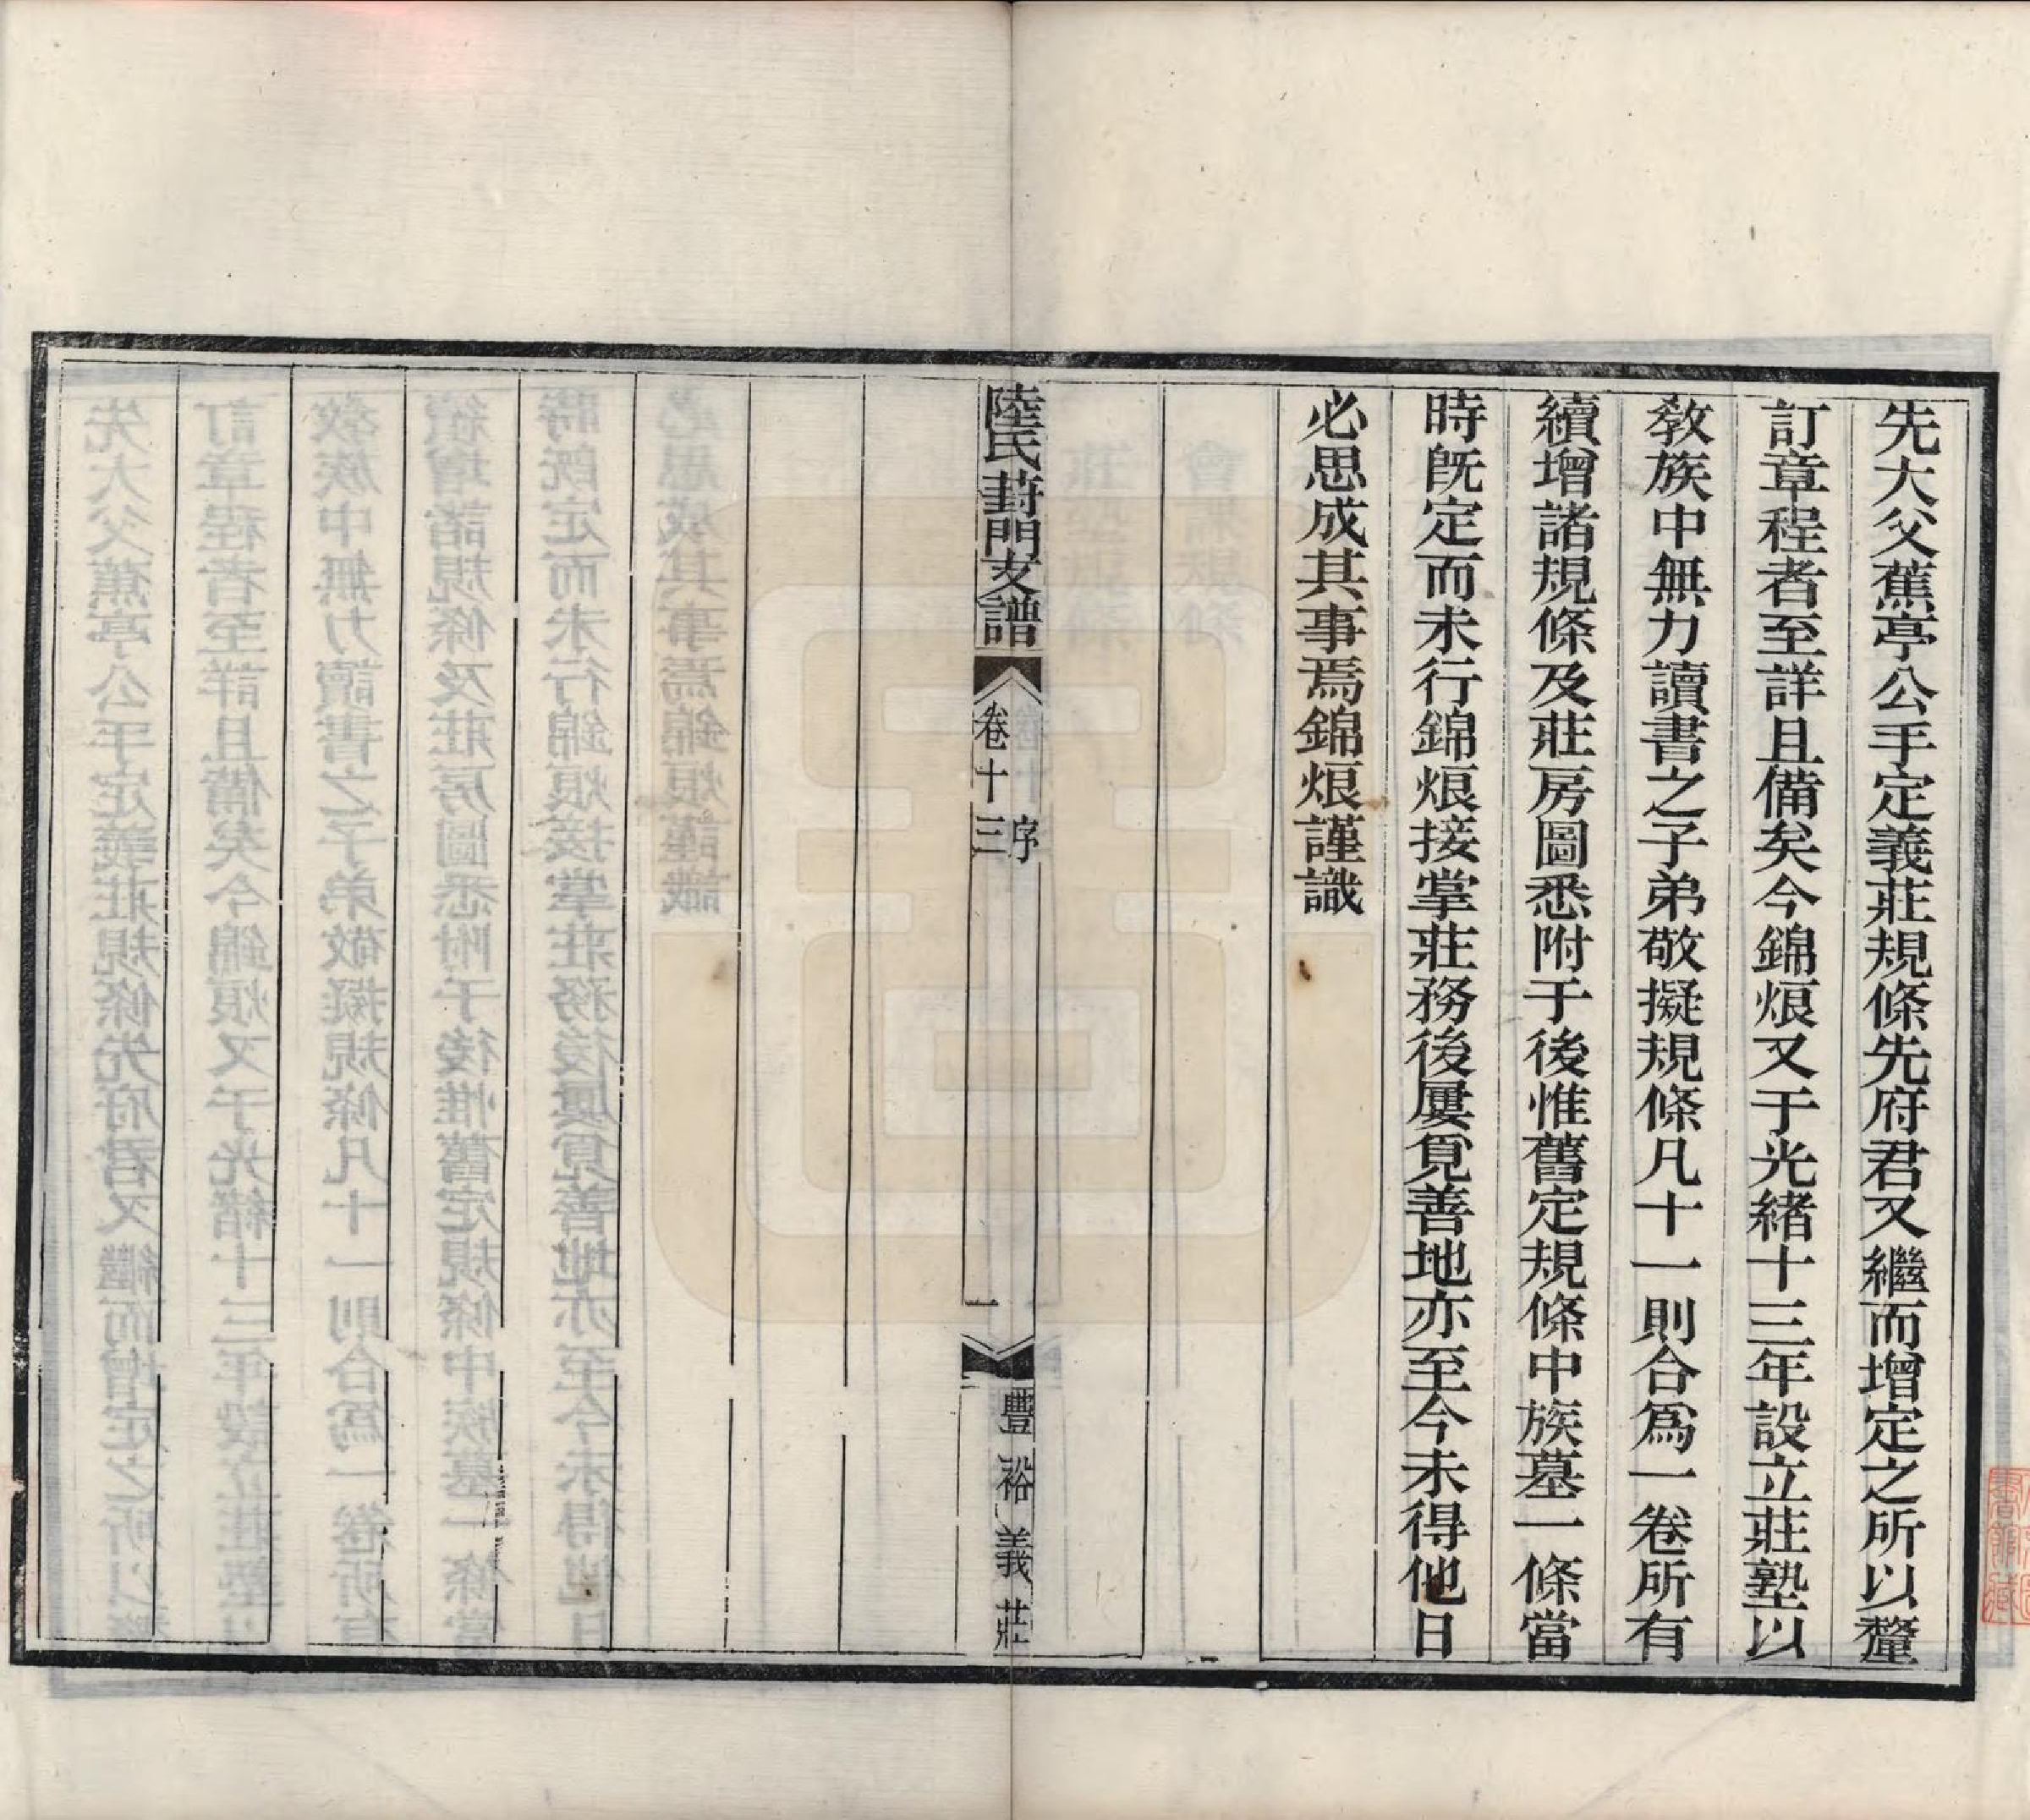 先大父蕉亭公手定義莊規條先府君又繼而增定之所以釐
訂章程者至詳且備矣今錦烺又于光緒十三年設立莊塾以
敎族中無力讀書之子弟敬擬規條凡十一則合爲一卷所有
續增諸規條及莊房圖悉附于後惟舊定規條中族墓一條當
時旣定而未行錦烺接掌莊務後屢覓善地亦至今未得他日
必思成其事焉錦烺謹識
陸氏葑門支譜
卷十三
序
一
豐裕義莊